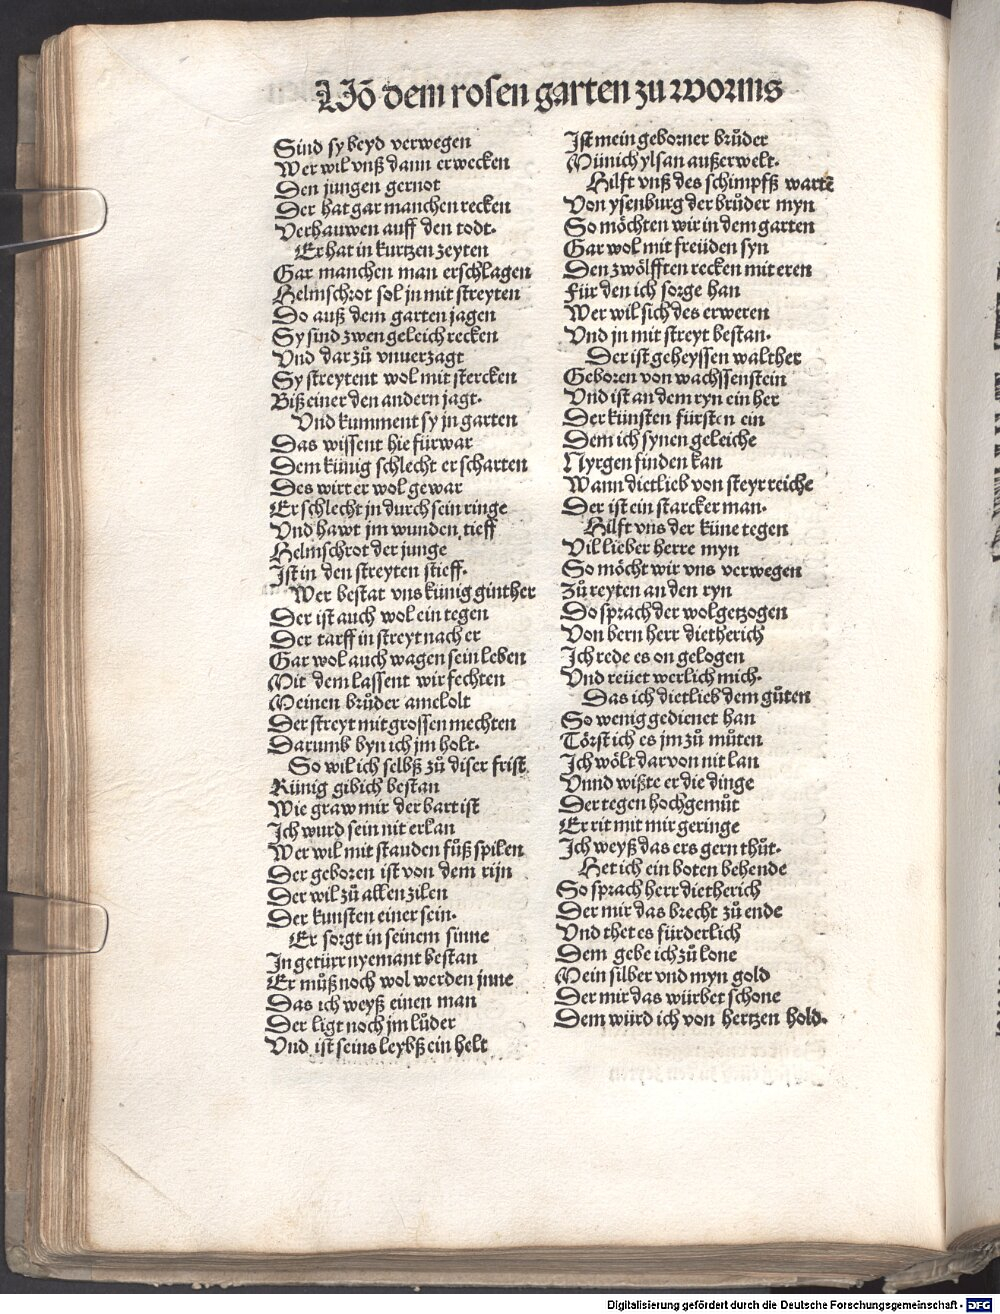 Võ dem rosen garten zu worms
Sind sy beyd verwegen
Wer wil vnß dann erwecken
Den jungen gernot
Der hat gar manchen recken
Verhauwen auff den todt.
Er hat in kurtzen zeyten
Gar manchen man erschlagen
Helmschrot sol jn mit streyten
Do auß dem garten jagen
Sy sind zwen geleich recken
Vnd dar zů vnuerzagt
Sy streytent wol mit stercken
Biß einer den andern jagt.
Vnd kumment sy jn garten
Das wissent hie fürwar
Dem künig schlecht er scharten
Des wirt er wol gewar
Er schlecht jn durch sein ringe
Vnd hawt jm wunden tieff
Helmschrot der junge
Ist in den streyten stieff.
Wer bestat vns künig ginther
Der ist auch wol ein tegen
Der tarff in streyt nach er
Gar wol auch wagen sein leben
Mit dem lassent wir fechten
Meinen brůder amelolt
Der streyt mit grossen mechten
Darumb byn ich jm holt.
So wil ich selbß zů diser frist
Künig gibich bestan
Wie graw mir der bart ist
Ich wurd sein nit erlan
Wer wil mit stauden fůß spilen
Der geboren ist von dem rijn
Der wil zů allen zilen
Der kunsten einer sein.
Er sorgt in seinem sinne
In getürr nyemant bestan
Er můß noch wol werden jnne
Das ich weyß einen man
Der ligt noch jm lůder
Vnd ist seins leybß ein helt
Ist mein geborner brůder
Münich ylsan außerwelt.
Hilft vnß des schimpfß wartē
Von ysenburg der brůder myn
So möchten wir in dem garten
Gar wol mit freüden syn
Den zwölfften recken mit eren
Für den ich sorge han
Wer wil sich des erweren
Vnd jn mit streyt bestan.
Der ist geheyssen walther
Geboren von wachssenstein
Vnd ist an dem ryn ein her
Der künsten fürsten ein
Dem ich synen geleiche
Nyrgen finden kan
Wann dietlieb von steyr reiche
Der ist ein starcker man.
Hilft vns der küne tegen
Vil lieber herre myn
So möcht wir vns verwegen
Zů reyten an den ryn
Do sprach der wolgetzogen
Von bern herr dietherich
Ich rede es on gelogen
Vnd reüet werlich mich.
Das ich dietlieb dem gůten
So wenig gedienet han
Törst ich es jm zů můten
Ich wölt darvon nit lan
Vnnd wißte er die dinge
Der tegen hochgemůt
Er rit mit mir geringe
Ich weyß das ers gern thůt.
Het ich ein boten behende
So sprach herr dietherich
Der mir das brecht zů ende
Vnd thet es fürderlich
Dem gebe ich zů lone
Mein silber vnd myn gold
Der mir das würbet schone
Dem würd ich von hertzen hold.
Digitalisierung gefördert durch die Deutsche Forschungsgemeinschaft - DFG